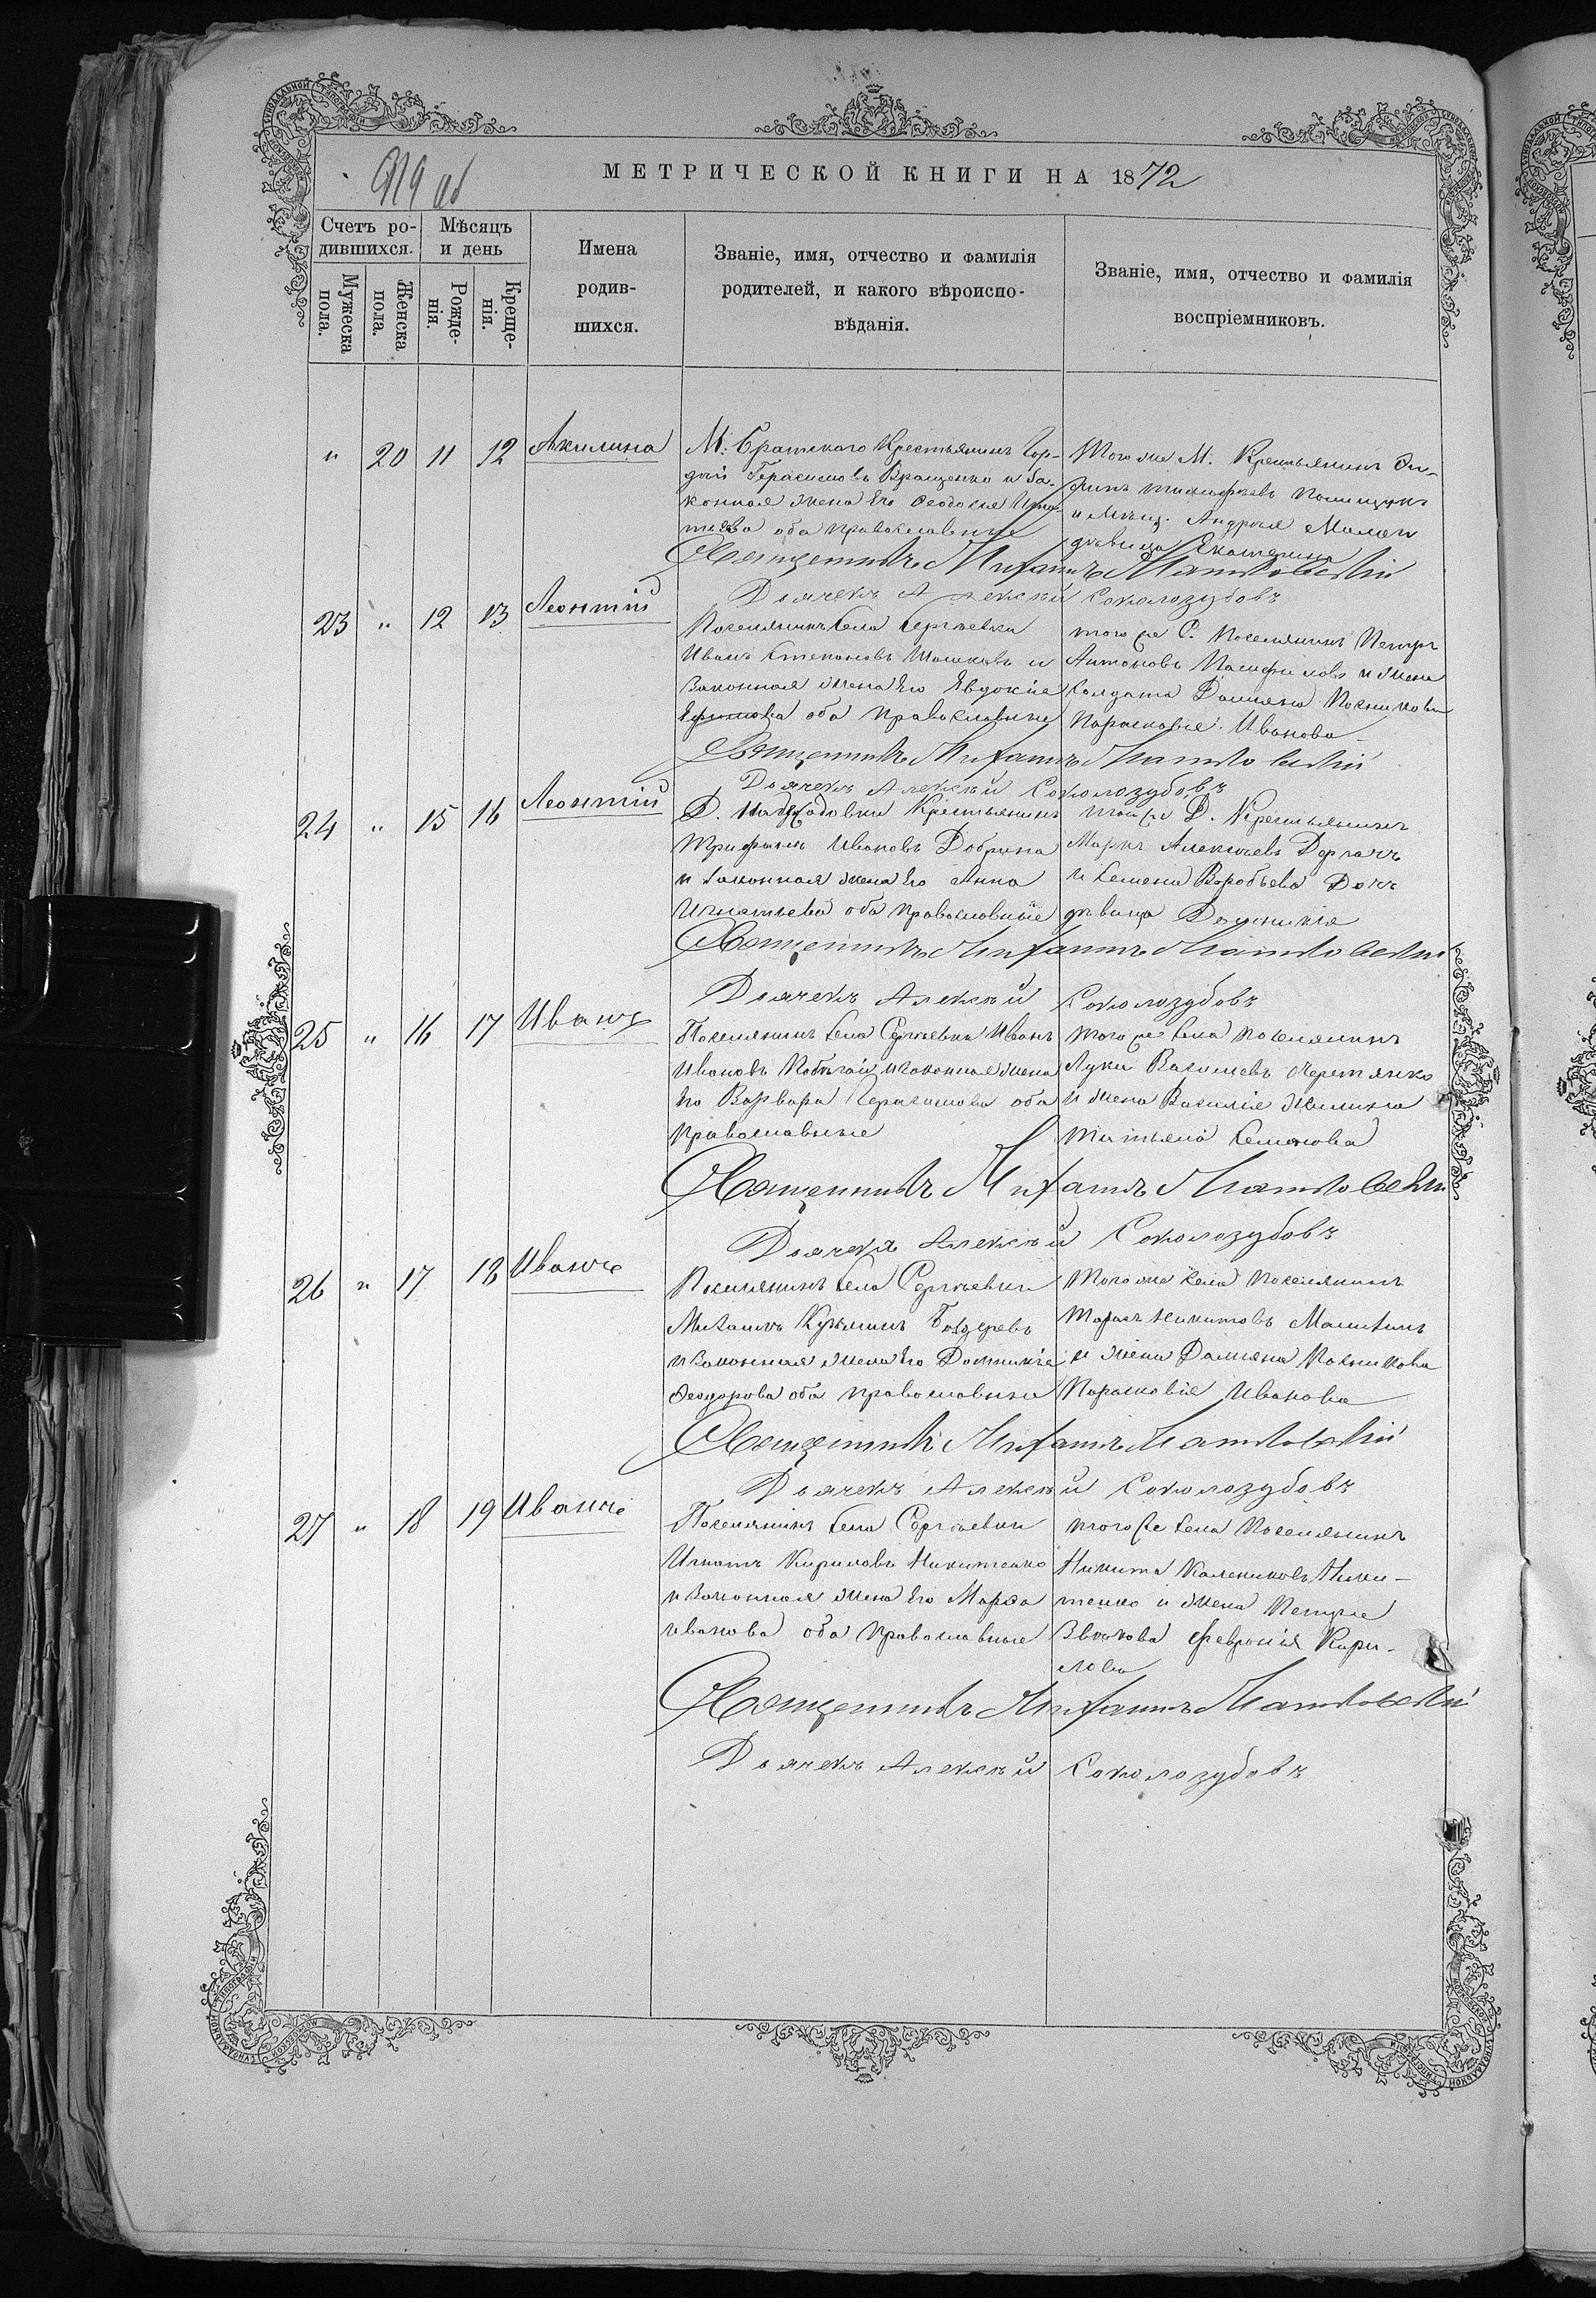 МЕТРИЧЕСКОЙ КНИГИ НА 1872
Счетъ ро-
дившихся.
Мѣсяцъ
и день
Имена
родив-
шихся.
Званіе, имя, отчество и фамилія
родителей, и какого вѣроиспо-
вѣданія.
Званіе, имя, отчество и фамилія
воспріемниковъ.
Мужеска
пола.
Женска
пола.
Рожде-
нія.
Креще-
нія.
" 20 11 12 Акилина
М: Братскаго Крестьянинъ Гор-
дій Герасимовъ Вращенко и За-
конная жена Его Феодосія Игна-
тьева оба православные
Того же М. Крестьянинъ
Тимофѣевъ Полищукъ
и Мѣщ. Андрея
дѣвица Екатерина
Священникъ Михаилъ
Дьячекъ Алексѣй Соколозубовъ
23 " 12 13 Леонтій
Поселянинъ Села Сергѣевки
Иванъ Степановъ Машковъ и
Законная жена Его Евдокія
Ефимова оба Православные
того же С. Поселянинъ Петръ
Антоновъ и жена
Солдата Даміана Посникова
Парасковія Иванова
Священникъ Михаилъ
Дьячекъ Алексѣй Соколозубовъ
24 " 15 16 Леонтій
Д. Крестьянинъ
Трифонъ Ивановъ Добрина
и Законная жена Его Анна
Игнатьева оба православные
той же Д. Крестьянинъ
Маркъ Алексѣевъ Дергачъ
и Семена Воробьева Дочь
дѣвица Домникія
Священникъ Михаилъ
Дьячекъ Алексѣй Соколозубовъ
25 " 16 17 Иванъ
Поселянинъ Села Сергѣевки Иванъ
Ивановъ и законная жена
Его Варвара Герасимова оба
православные
того же Села поселянинъ
Лука Василіевъ Черетянко
и жена Василія Жилина
Татьяна Семенова
Священникъ Михаилъ
Дьячекъ Алексѣй Соколозубовъ
26 " 17 18 Иванъ
Поселянинъ Села Сергѣевки
Михаилъ Кузьминъ
и Законная жена Его Домникія
Феодорова оба православные
Того же Села поселянинъ
Тарасъ Никитовъ
и жена Даміана Посникова
Парасковія Иванова
Священникъ Михаилъ
Дьячекъ Алексѣй Соколозубовъ
27 " 18 19 Иванъ
Поселянинъ Села Сергѣевки
Игнатъ Кириловъ Никитенко
и Законная жена Его Марфа
Иванова оба православные
того же Села Поселянинъ
Никита Калениковъ Ники-
тенко и жена Петра
Феврониія Кири-
лова
Священникъ Михаилъ
Дьячекъ Алексѣй Соколозубовъ